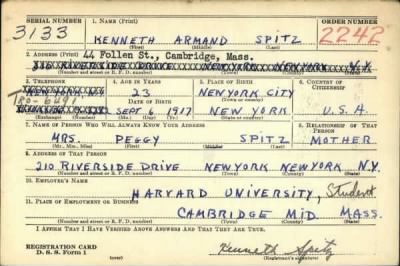 SERIAL NUMBER 1. NAME (Print) ORDER NUMBER
3133 KENNETH ARMAND SPITZ 2242
(First) (Middle) (Last)
2. ADDRESS (Print) 44 Follen St., Cambridge, Mass.
210 RIVERSIDE DRIVE NEW YORK NEW YORK N.Y.
(Number and street or R. F. D. number) (Town) (County) (State)
3. TELEPHONE 4. AGE IN YEARS 5. PLACE OF BIRTH 6. COUNTRY OF CITIZENSHIP
23 NEW YORK CITY
TRO-6491 DATE OF BIRTH (Town or county)
SEPT 6 1917 NEW YORK U.S.A.
(Exchange) (Number) (Mo.) (Day) (Yr.) (State or country)
7. NAME OF PERSON WHO WILL ALWAYS KNOW YOUR ADDRESS 8. RELATIONSHIP OF THAT PERSON
MRS. PEGGY SPITZ MOTHER
(Mr., Mrs., Miss) (First) (Middle) (Last)
9. ADDRESS OF THAT PERSON
210 RIVERSIDE DRIVE NEW YORK NEW YORK N.Y.
(Number and street or R. F. D. number) (Town) (County) (State)
10. EMPLOYER'S NAME
HARVARD UNIVERSITY, Student
11. PLACE OF EMPLOYMENT OR BUSINESS
CAMBRIDGE MID. MASS.
(Number and street or R. F. D. number) (Town) (County) (State)
I AFFIRM THAT I HAVE VERIFIED ABOVE ANSWERS AND THAT THEY ARE TRUE.
REGISTRATION CARD
D. S. S. Form 1 Kenneth Spitz
(over) (Registrant's signature)